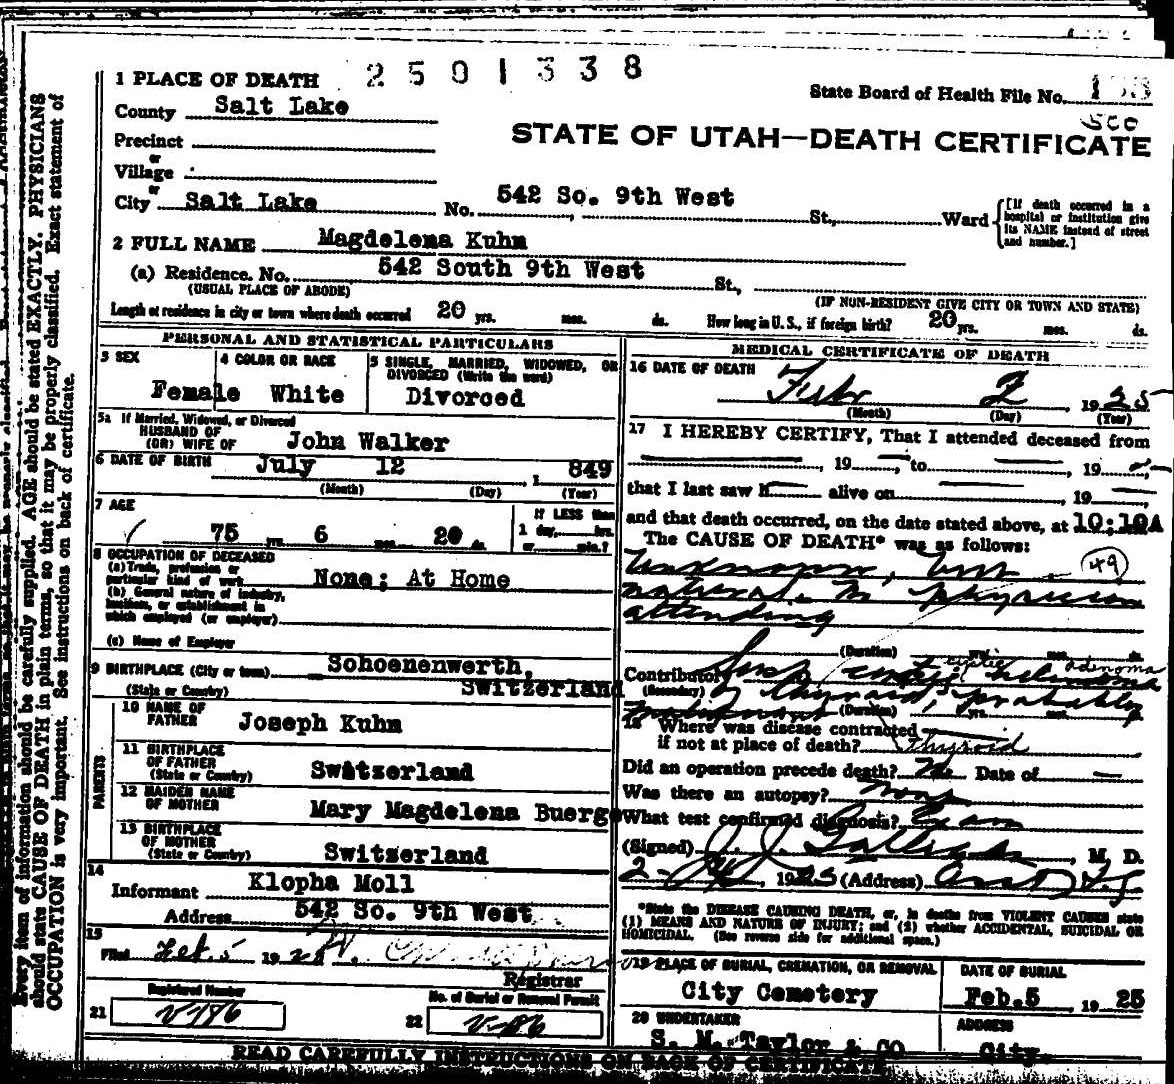 1 PLACE OF DEATH 2501338
State Board of Health File No.
County Salt Lake
STATE OF UTAH—DEATH CERTIFICATE
Precinct
or
Village
or
City Salt Lake No. 542 So. 9th West St., Ward
[If death occurred in a hospital or institution give its NAME instead of street and number.]
2 FULL NAME Magdelena Kuhn
(a) Residence. No. 542 South 9th West St.,
(USUAL PLACE OF ABODE)
(IF NON-RESIDENT GIVE CITY OR TOWN AND STATE)
Length of residence in city or town where death occurred 20 yrs. mos. ds. How long in U. S., if foreign birth? 20 yrs. mos. ds.
PERSONAL AND STATISTICAL PARTICULARS
3 SEX
Female
4 COLOR OR RACE
White
5 SINGLE, MARRIED, WIDOWED, OR DIVORCED (Write the word)
Divorced
5a If Married, Widowed, or Divorced
HUSBAND OF
(OR) WIFE OF John Walker
6 DATE OF BIRTH July 12, 1849
(Month) (Day) (Year)
7 AGE
75 yrs. 6 mos. 20 ds.
IF LESS than
1 day, hrs.
or min.?
8 OCCUPATION OF DECEASED
(a) Trade, profession or
particular kind of work None; At Home
(b) General nature of industry,
business, or establishment in
which employed (or employer)
(c) Name of Employer
9 BIRTHPLACE (City or town) Schoenenwerth,
(State or Country) Switzerland
PARENTS
10 NAME OF
FATHER Joseph Kuhn
11 BIRTHPLACE
OF FATHER
(State or Country) Switzerland
12 MAIDEN NAME
OF MOTHER Mary Magdelena Buerge
13 BIRTHPLACE
OF MOTHER
(State or Country) Switzerland
14
Informant Klopha Moll
Address 542 So. 9th West
15
Filed Feb. 5 192
Registrar
Registered Number
No. of Burial or Removal Permit
21 V-186
22 V-186
MEDICAL CERTIFICATE OF DEATH
16 DATE OF DEATH
Febr 2 1925
(Month) (Day) (Year)
17 I HEREBY CERTIFY, That I attended deceased from
, 19 , to , 19
that I last saw h alive on , 19
and that death occurred, on the date stated above, at 10:10A
The CAUSE OF DEATH* was as follows:
Unknown, but 49
natural. No physician
attending
(Duration) yrs. mos. ds.
Contributory cystic adenoma
(Secondary) of thyroid, probably
(Duration) yrs. mos.
18 Where was disease contracted
if not at place of death? Thyroid
Did an operation precede death? No Date of —
Was there an autopsy? None
What test confirmed diagnosis? Exam
(Signed) J. J. , M. D.
2- , 1925 (Address)
*State the DISEASE CAUSING DEATH, or, in deaths from VIOLENT CAUSES state
(1) MEANS AND NATURE OF INJURY; and (2) whether ACCIDENTAL, SUICIDAL OR
HOMICIDAL. (See reverse side for additional space.)
19 PLACE OF BURIAL, CREMATION, OR REMOVAL
City Cemetery
DATE OF BURIAL
Feb.5 1925
20 UNDERTAKER
S. M. Taylor & CO
ADDRESS
City.
READ CAREFULLY INSTRUCTIONS ON BACK OF CERTIFICATE
Every item of information should be carefully supplied. AGE should be stated EXACTLY. PHYSICIANS
should state CAUSE OF DEATH in plain terms, so that it may be properly classified. Exact statement of
OCCUPATION is very important. See instructions on back of certificate.